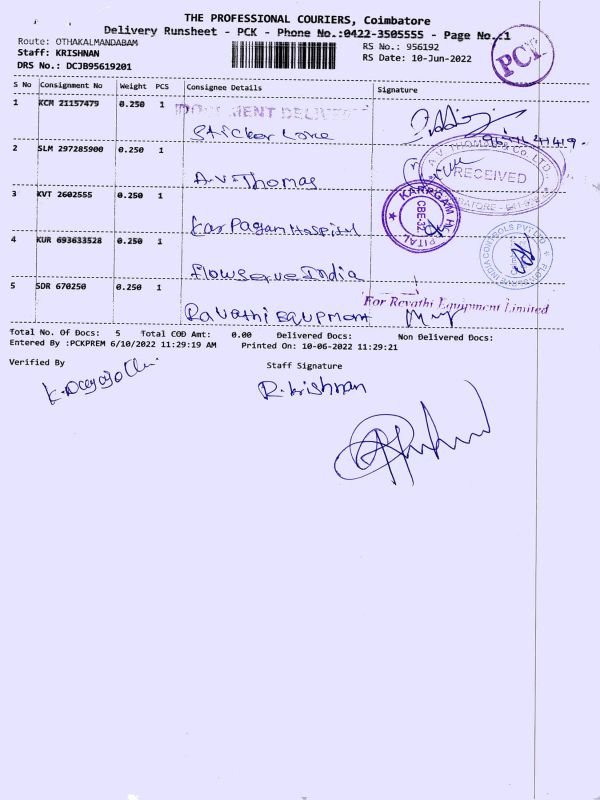 THE PROFESSIONAL COURIERS, Coimbatore
Delivery Runsheet - PCK - Phone No.:0422-3505555 - Page No.:1
Route: OTHAKALMANDABAM
RS No.: 956192
Staff: KRISHNAN
RS Date: 10-Jun-2022
DRS No.: DCJB95619201
PCK
S No Consignment No Weight PCS Consignee Details Signature
1 KCM 21157479 0.250 1
Sticker Lore
2 SLM 297285900 0.250 1
A.V. THOMAS & CO. LTD.
RECEIVED
A.V. Thomas
3 KVT 2602555 0.250 1
KARPAGAM HOSPITAL
CBE-32
KarPagan Hospital
4 KUR 693633528 0.250 1
Flowserve India
5 SDR 670250 0.250 1
For Revathi Equipment Limited
Ravathi EQUPMENT
Total No. Of Docs: 5 Total COD Amt: 0.00 Delivered Docs: Non Delivered Docs:
Entered By :PCKPREM 6/10/2022 11:29:19 AM Printed On: 10-06-2022 11:29:21
Verified By Staff Signature
R. Krishnan